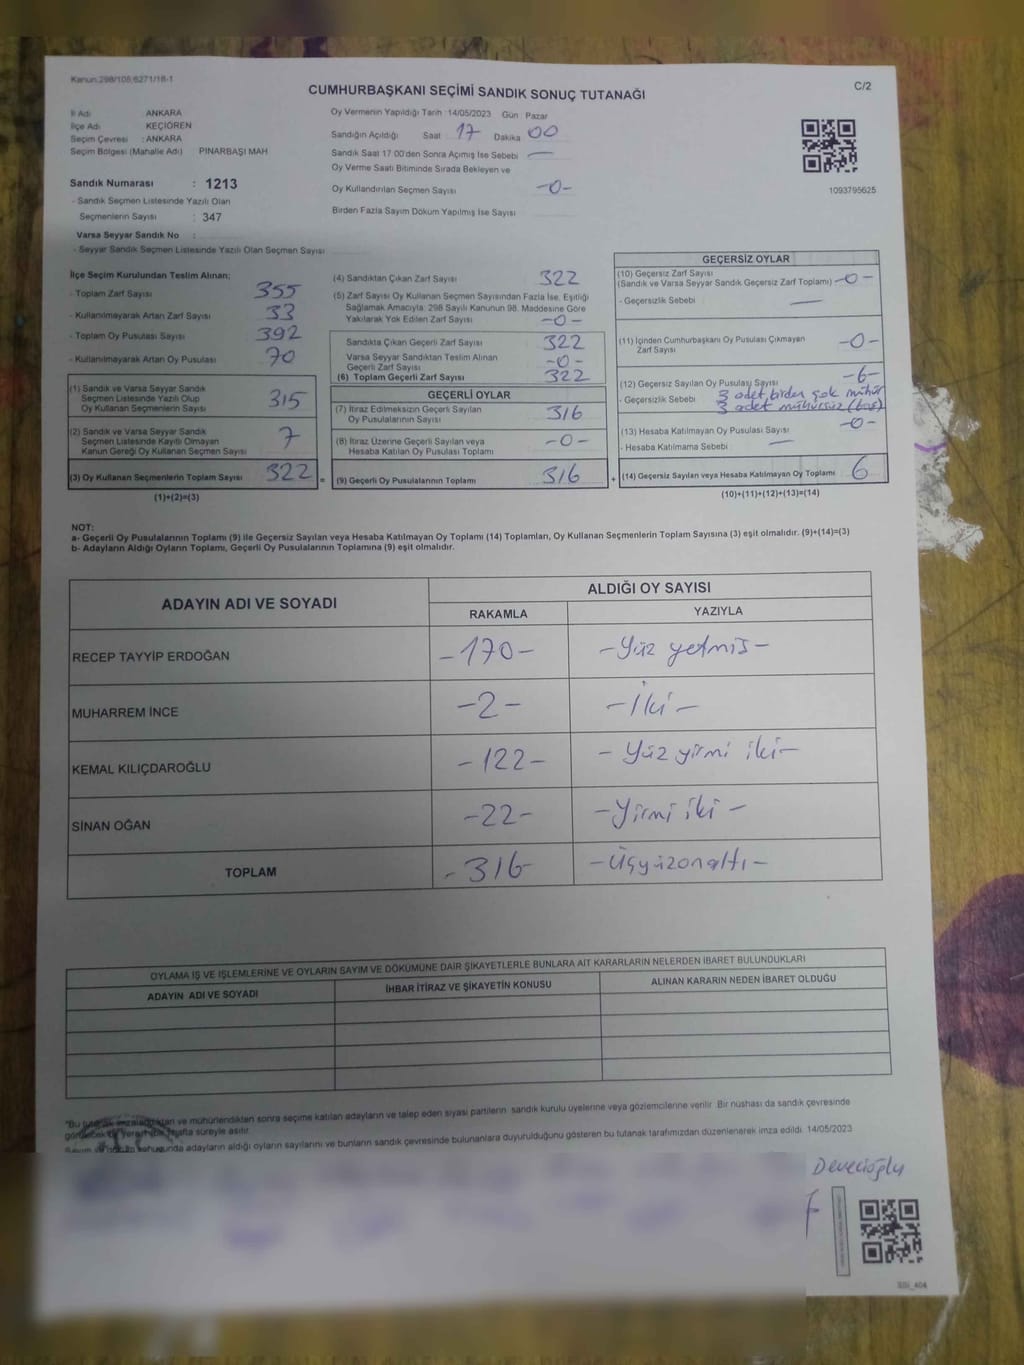 Kanun.298/105,6271/18-1
C/2
CUMHURBAŞKANI SEÇİMİ SANDIK SONUÇ TUTANAĞI
İl Adı : ANKARA
İlçe Adı : KEÇİÖREN
Seçim Çevresi : ANKARA
Seçim Bölgesi (Mahalle Adı) PINARBAŞI MAH
Sandık Numarası : 1213
- Sandık Seçmen Listesinde Yazılı Olan
Seçmenlerin Sayısı : 347
Varsa Seyyar Sandık No :
- Seyyar Sandık Seçmen Listesinde Yazılı Olan Seçmen Sayısı
Oy Vermenin Yapıldığı Tarih :14/05/2023 Gün Pazar
Sandığın Açıldığı Saat 17 Dakika 00
Sandık Saat 17.00'den Sonra Açılmış İse Sebebi —
Oy Verme Saati Bitiminde Sırada Bekleyen ve
Oy Kullandırılan Seçmen Sayısı -0-
Birden Fazla Sayım Döküm Yapılmış İse Sayısı
1093795625
İlçe Seçim Kurulundan Teslim Alınan;
- Toplam Zarf Sayısı 355
- Kullanılmayarak Artan Zarf Sayısı 33
- Toplam Oy Pusulası Sayısı 392
- Kullanılmayarak Artan Oy Pusulası 70
(1) Sandık ve Varsa Seyyar Sandık
Seçmen Listesinde Yazılı Olup
Oy Kullanan Seçmenlerin Sayısı 315
(2) Sandık ve Varsa Seyyar Sandık
Seçmen Listesinde Kayıtlı Olmayan
Kanun Gereği Oy Kullanan Seçmen Sayısı 7
(3) Oy Kullanan Seçmenlerin Toplam Sayısı 322 =
(1)+(2)=(3)
(4) Sandıktan Çıkan Zarf Sayısı 322
(5) Zarf Sayısı Oy Kullanan Seçmen Sayısından Fazla İse, Eşitliği
Sağlamak Amacıyla; 298 Sayılı Kanunun 98. Maddesine Göre
Yakılarak Yok Edilen Zarf Sayısı -0-
Sandıkta Çıkan Geçerli Zarf Sayısı 322
Varsa Seyyar Sandıktan Teslim Alınan
Geçerli Zarf Sayısı -0-
(6) Toplam Geçerli Zarf Sayısı 322
GEÇERLİ OYLAR
(7) İtiraz Edilmeksizin Geçerli Sayılan
Oy Pusulalarının Sayısı 316
(8) İtiraz Üzerine Geçerli Sayılan veya
Hesaba Katılan Oy Pusulası Toplamı -0-
(9) Geçerli Oy Pusulalarının Toplamı 316 +
GEÇERSİZ OYLAR
(10) Geçersiz Zarf Sayısı
(Sandık ve Varsa Seyyar Sandık Geçersiz Zarf Toplamı) -0-
- Geçersizlik Sebebi —
(11) İçinden Cumhurbaşkanı Oy Pusulası Çıkmayan
Zarf Sayısı -0-
(12) Geçersiz Sayılan Oy Pusulası Sayısı -6-
- Geçersizlik Sebebi 3 adet birden çok mühür
3 adet mühürsüz (boş)
(13) Hesaba Katılmayan Oy Pusulası Sayısı -0-
- Hesaba Katılmama Sebebi —
(14) Geçersiz Sayılan veya Hesaba Katılmayan Oy Toplamı 6
(10)+(11)+(12)+(13)=(14)
NOT:
a- Geçerli Oy Pusulalarının Toplamı (9) ile Geçersiz Sayılan veya Hesaba Katılmayan Oy Toplamı (14) Toplamları, Oy Kullanan Seçmenlerin Toplam Sayısına (3) eşit olmalıdır. (9)+(14)=(3)
b- Adayların Aldığı Oyların Toplamı, Geçerli Oy Pusulalarının Toplamına (9) eşit olmalıdır.
ADAYIN ADI VE SOYADI
ALDIĞI OY SAYISI
RAKAMLA YAZIYLA
RECEP TAYYİP ERDOĞAN -170- -Yüz yetmiş-
MUHARREM İNCE -2- -İki-
KEMAL KILIÇDAROĞLU -122- -Yüz yirmi iki-
SİNAN OĞAN -22- -Yirmi iki-
TOPLAM -316- -Üçyüzonaltı-
OYLAMA İŞ VE İŞLEMLERİNE VE OYLARIN SAYIM VE DÖKÜMÜNE DAİR ŞİKAYETLERLE BUNLARA AİT KARARLARIN NELERDEN İBARET BULUNDUKLARI
ADAYIN ADI VE SOYADI İHBAR İTİRAZ VE ŞİKAYETİN KONUSU ALINAN KARARIN NEDEN İBARET OLDUĞU
"Bu ve mühürlendikten sonra seçime katılan adayların ve talep eden siyasi partilerin sandık kurulu üyelerine veya gözlemcilerine verilir. Bir nüshası da sandık çevresinde
hafta süreyle asılır.
adayların aldığı oyların sayılarını ve bunların sandık çevresinde bulunanlara duyurulduğunu gösteren bu tutanak tarafımızdan düzenlenerek imza edildi. 14/05/2023
Devecioğlu